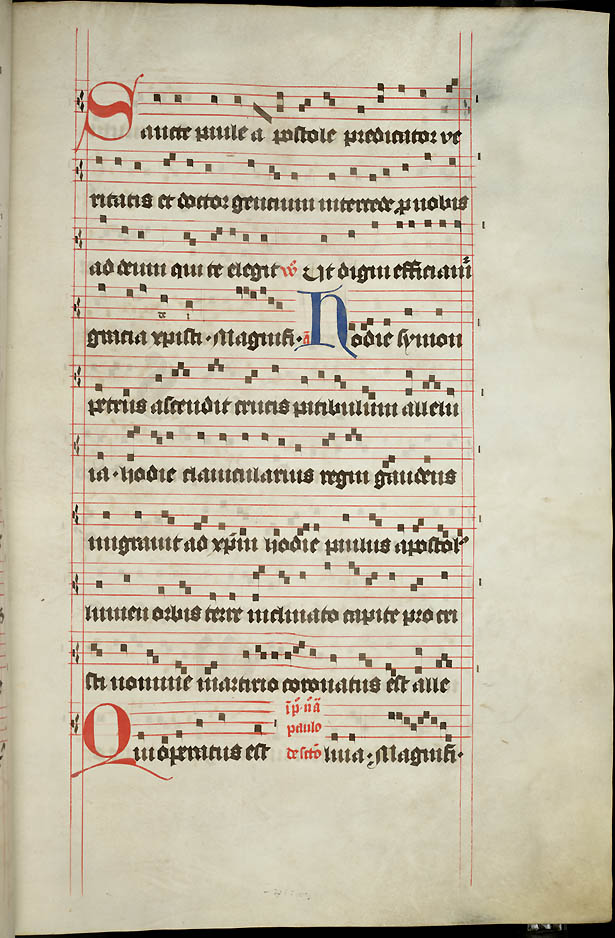 Sancte paule apostole predicator ve
ritatis et doctor gentium intercede p nobis
ad deum qui te elegit Ut digni efficiam
gratia xpisti · Magnifi · a Hodie symon
petrus ascendit crucis patibulum allelu
ia · hodie clauicularius regni gaudens
migrauit ad xpm hodie paulus apostol
lumen orbis terre inclinato capite pro cri
sti nomine martirio coronatus est alle
Qui operatus est luia · Magnifi ·
paulo